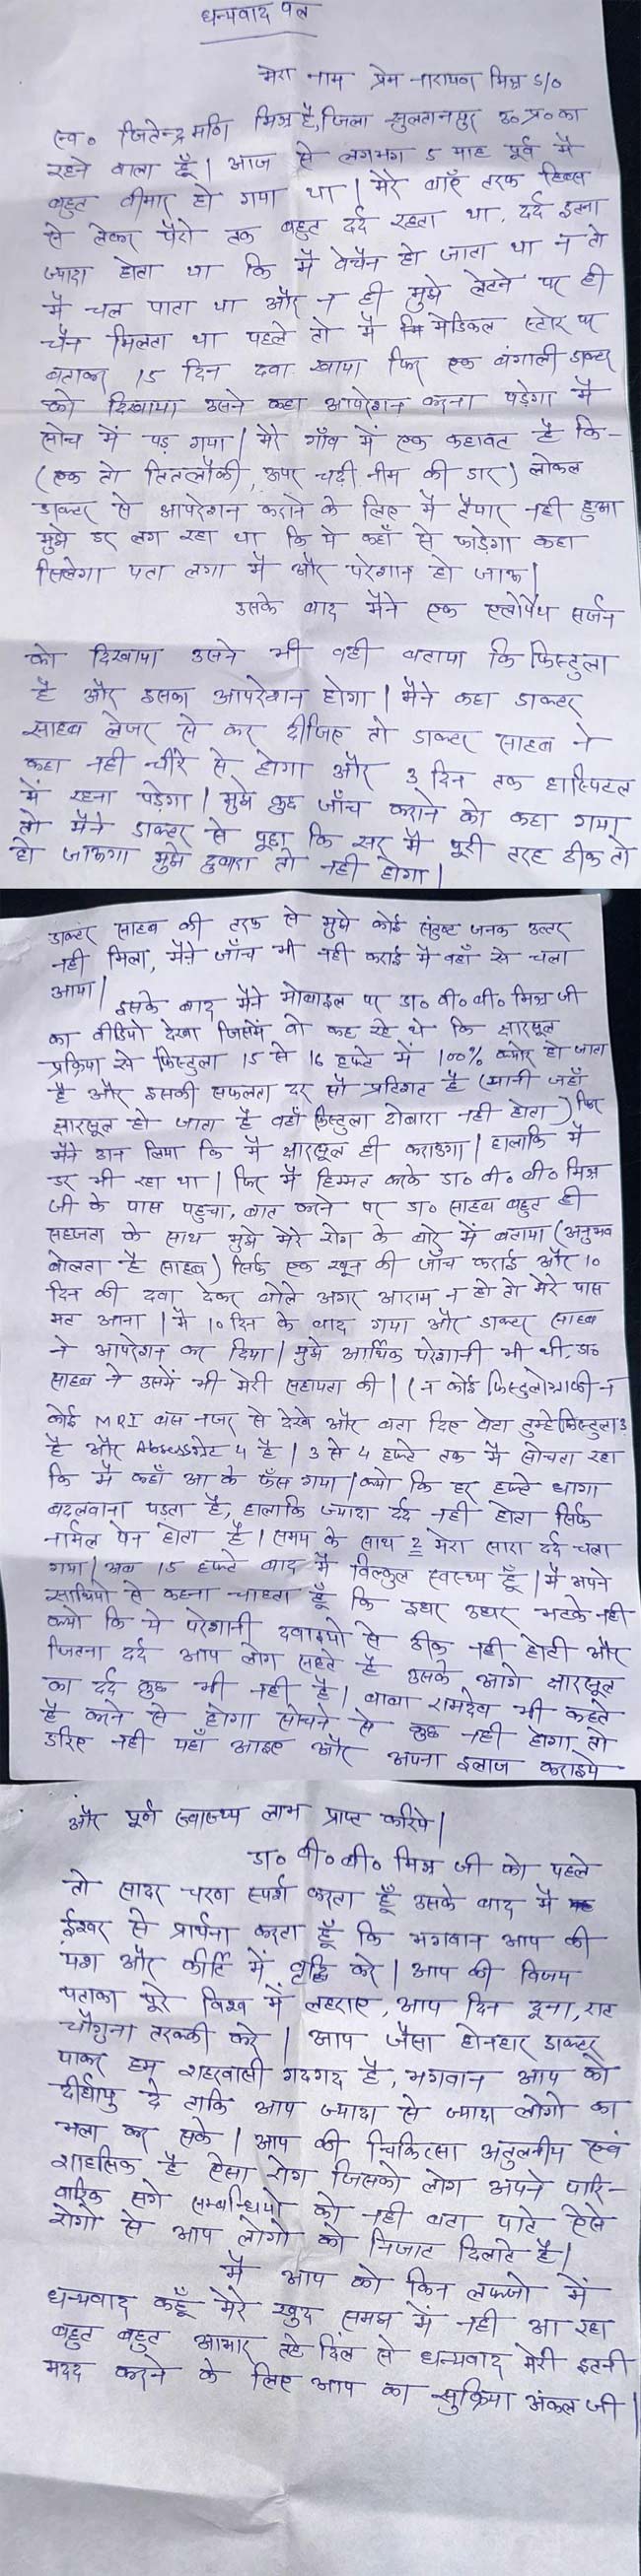 धन्यवाद पत्र
मेरा नाम प्रेम नारायण मिश्र S/०
स्व० जितेन्द्र मणि मिश्र है, जिला सुलतानपुर उ० प्र० का
रहने वाला हूँ | आज से लगभग 5 माह पूर्व मैं
बहुत बीमार हो गया था | मेरे बाएँ तरफ हिप्स
से लेकर पैरो तक बहुत दर्द रहता था, दर्द इतना
ज्यादा होता था कि मैं बेचैन हो जाता था न तो
मैं चल पाता था और न ही मुझे लेटने पर ही
चैन मिलता था पहले तो मैं मेडिकल स्टोर पर
बताकर 15 दिन दवा खाया फिर एक बंगाली डाक्टर
को दिखाया उसने कहा आपरेशन करना पड़ेगा मैं
सोच में पड़ गया | मेरे गाँव में एक कहावत है कि-
(एक तो तितलौकी, ऊपर चढ़ी नीम की डार) लोकल
डाक्टर से आपरेशन कराने के लिए मैं तैयार नही हुआ
मुझे डर लग रहा था कि ये कहाँ से फाड़ेगा कहा
सिलेगा पता लगा मैं और परेशान हो जाऊ |
उसके बाद मैंने एक एलोपैथ सर्जन
को दिखाया उसने भी वही बताया कि फिस्टुला
है और इसका आपरेशन होगा | मैंने कहा डाक्टर
साहब लेजर से कर दीजिए तो डाक्टर साहब ने
कहा नही चीरे से होगा और 3 दिन तक हास्पिटल
में रहना पड़ेगा | मुझे कुछ जाँच कराने को कहा गया
तो मैंने डाक्टर से पूछा कि सर मैं पूरी तरह ठीक तो
हो जाऊगा मुझे दुबारा तो नही होगा |
डाक्टर साहब की तरफ से मुझे कोई संतुष्ट जनक उत्तर
नही मिला, मैंने जाँच भी नही कराई मैं वहाँ से चला
आया |
इसके बाद मैंने मोबाइल पर डा० वी० बी० मिश्र जी
का वीडियो देखा जिसमें वो कह रहे थे कि क्षारसूत्र
प्रक्रिया से फिस्टुला 15 से 16 हफ्ते में 100% क्योर हो जाता
है और इसकी सफलता दर सौ प्रतिशत है (यानी जहाँ
क्षारसूत्र हो जाता है वहाँ फिस्टुला दोबारा नही होता) फिर
मैंने ठान लिया कि मैं क्षारसूत्र ही कराउगा | हालाकि मैं
डर भी रहा था | फिर मैं हिम्मत करके डा० वी० बी० मिश्र
जी के पास पहुचा, बात करने पर डा० साहब बहुत ही
सहजता के साथ मुझे मेरे रोग के बारे में बताया (अनुभव
बोलता है साहब) सिर्फ एक खून की जाँच कराई और 10
दिन की दवा देकर बोले अगर आराम न हो तो मेरे पास
मत आना | मैं 10 दिन के बाद गया और डाक्टर साहब
ने आपरेशन कर दिया | मुझे आर्थिक परेशानी भी थी, डा०
साहब ने उसमें भी मेरी सहायता की | (न कोई फिस्टुलोग्राफी न
कोई MRI बस नजर से देखे और बता दिए बेटा तुम्हे फिस्टुला 3
है और 4 है | 3 से 4 हफ्ते तक मैं सोचता रहा
कि मैं कहाँ आ के फँस गया | क्यो कि हर हफ्ते धागा
बदलवाना पड़ता है, हालाकि ज्यादा दर्द नही होता सिर्फ
नार्मल पेन होता है | समय के साथ 2 मेरा सारा दर्द चला
गया | अब 15 हफ्ते बाद मैं बिल्कुल स्वस्थ्य हूँ | मैं अपने
साथियो से कहना चाहता हूँ कि इधर उधर भटके नही
क्यो कि ये परेशानी दवाइयो से ठीक नही होती और
जितना दर्द आप लोग सहते है उसके आगे क्षारसूत्र
का दर्द कुछ भी नही है | बाबा रामदेव भी कहते
है करने से होगा सोचने से कुछ नही होगा, तो
डरिए नही यहाँ आइए और अपना इलाज कराइये
और पूर्ण स्वास्थ्य लाभ प्राप्त करिये |
डा० वी० बी० मिश्र जी को पहले
तो सादर चरण स्पर्श करता हूँ उसके बाद मैं
ईश्वर से प्रार्थना करता हूँ कि भगवान आप की
यश और कीर्ति में वृद्धि करे | आप की विजय
पताका पूरे विश्व में लहराए, आप दिन दूना, रात
चौगुना तरक्की करे | आप जैसा होनहार डाक्टर
पाकर हम शहरवासी गदगद है, भगवान आप को
दीर्घायु दे ताकि आप ज्यादा से ज्यादा लोगो का
भला कर सके | आप की चिकित्सा अतुलनीय एवं
शाहसिक है ऐसा रोग जिसको लोग अपने पारि-
वारिक सगे सम्बन्धियो को नही बता पाते ऐसे
रोगो से आप लोगो को निजात दिलाते है |
मैं आप को किन लफ्जो में
धन्यवाद कहूँ मेरे खुद समझ में नही आ रहा
बहुत बहुत आभार तहे दिल से धन्यवाद मेरी इतनी
मदद करने के लिए आप का सुक्रिया अंकल जी |